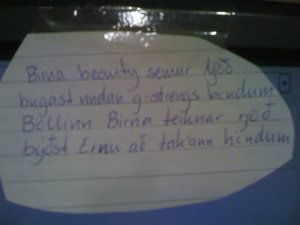 Birna beauty semur ljóð
bugast undan g-strengs böndum
Böllinn Birna teiknar rjóð
býðst Ernu að tak'ann höndum